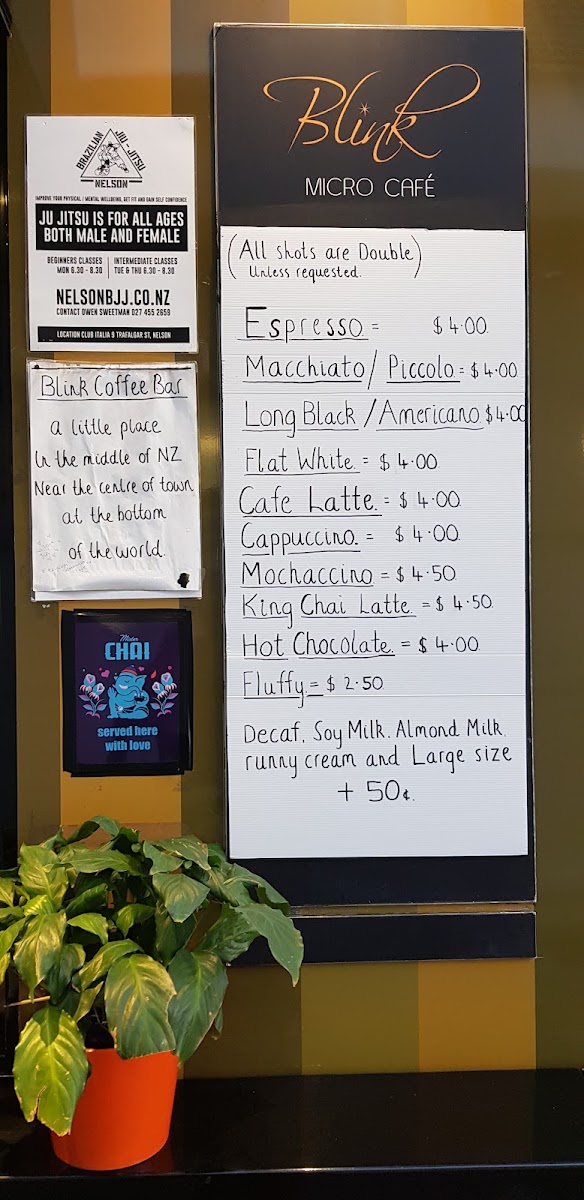 BRAZILIAN JIU - JITSU
NELSON
IMPROVE YOUR PHYSICAL / MENTAL WELLBEING, GET FIT AND GAIN SELF CONFIDENCE
JU JITSU IS FOR ALL AGES
BOTH MALE AND FEMALE
BEGINNERS CLASSES
MON 6.30 - 8.30
INTERMEDIATE CLASSES
TUE & THU 6.30 - 8.30
NELSONBJJ.CO.NZ
CONTACT OWEN SWEETMAN 027 455 2659
LOCATION CLUB ITALIA 9 TRAFALGAR ST, NELSON
Blink Coffee Bar
a little place
In the middle of NZ
Near the centre of town
at the bottom
of the world.
Mister
CHAI
served here
with love
Blink
MICRO CAFÉ
(All shots are Double)
Unless requested.
Espresso = $4.00
Macchiato / Piccolo = $4.00
Long Black / Americano $4.00
Flat White = $4.00
Cafe Latte. = $4.00
Cappuccino. = $4.00
Mochaccino = $4.50
King Chai Latte = $4.50
Hot Chocolate. = $4.00
Fluffy = $2.50
Decaf, Soy Milk. Almond Milk.
runny cream and Large size
+ 50¢.